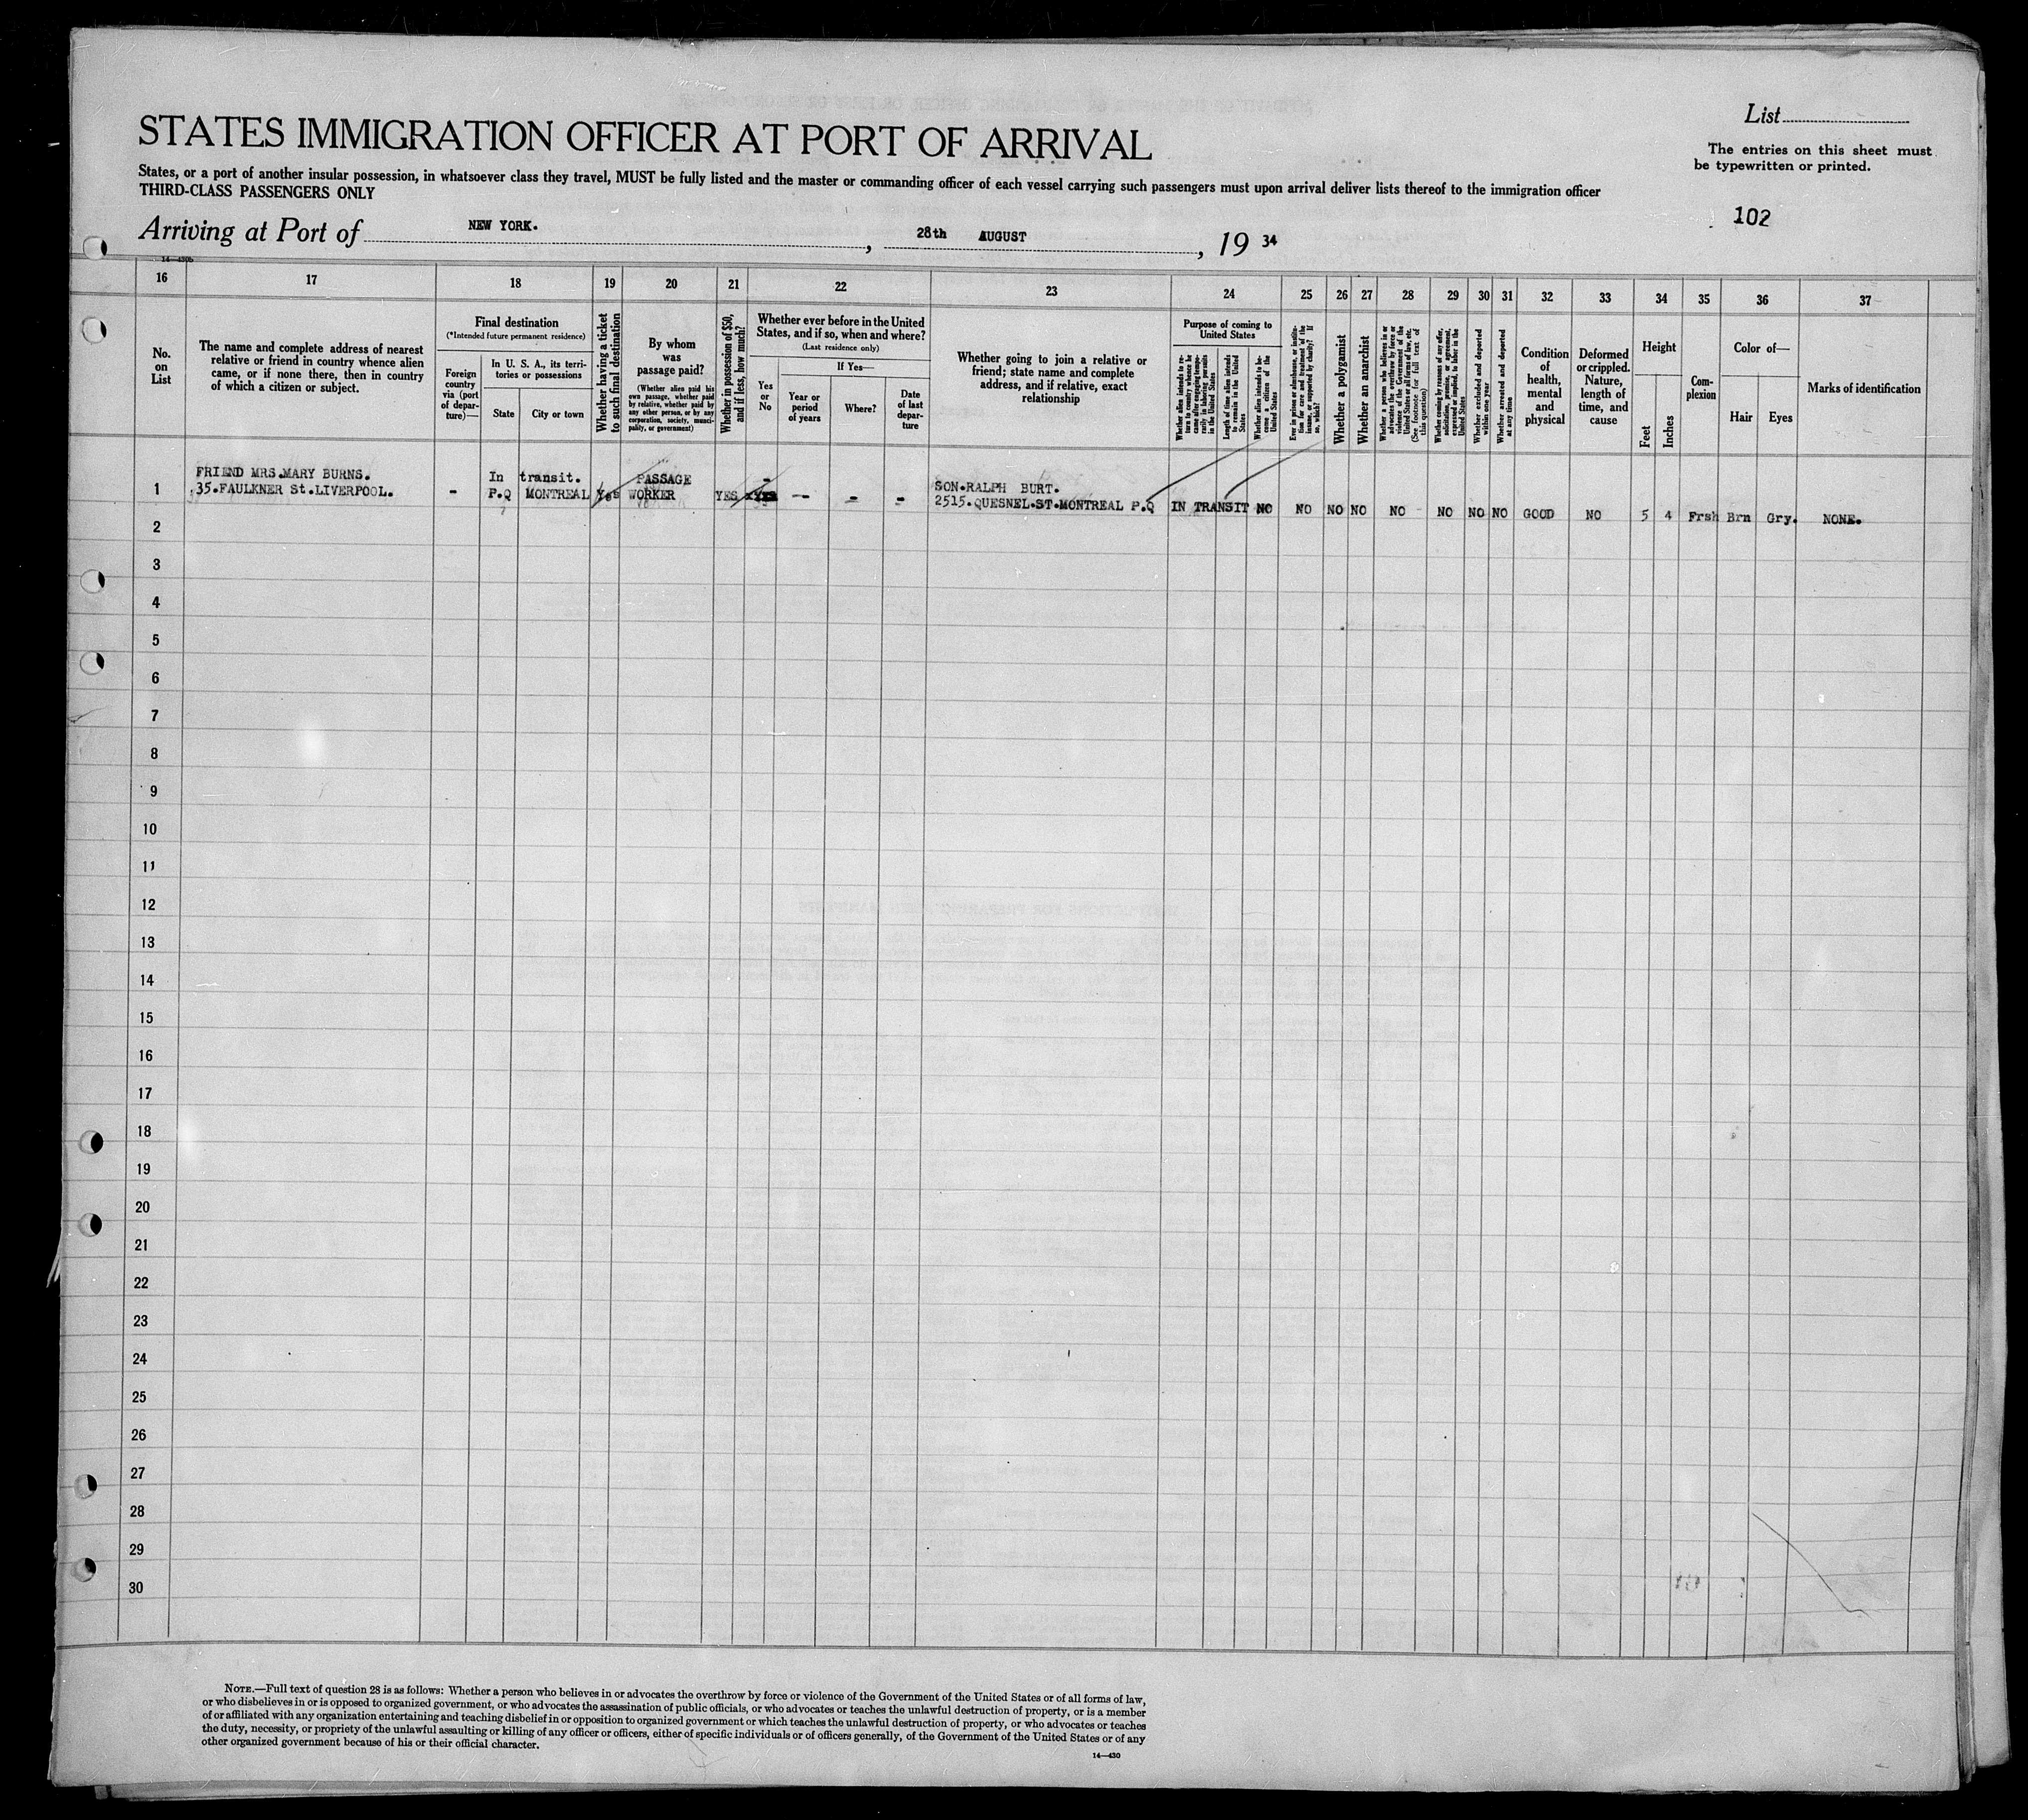 List
STATES IMMIGRATION OFFICER AT PORT OF ARRIVAL
The entries on this sheet must
be typewritten or printed.
States, or a port of another insular possession, in whatsoever class they travel, MUST be fully listed and the master or commanding officer of each vessel carrying such passengers must upon arrival deliver lists thereof to the immigration officer
THIRD-CLASS PASSENGERS ONLY
102
Arriving at Port of NEW YORK. , 28th AUGUST , 19 34
14—430b
16 17 18 19 20 21 22 23 24 25 26 27 28 29 30 31 32 33 34 35 36 37
No.
on
List
The name and complete address of nearest
relative or friend in country whence alien
came, or if none there, then in country
of which a citizen or subject.
Final destination
(*Intended future permanent residence)
Foreign
country
via (port
of depar-
ture)—
In U. S. A., its terri-
tories or possessions
State
City or town
Whether having a ticket
to such final destination
By whom
was
passage paid?
(Whether alien paid his
own passage, whether paid
by relative, whether paid by
any other person, or by any
corporation, society, munci-
pality, or government)
Whether in possession of $50,
and if less, how much?
Whether ever before in the United
States, and if so, when and where?
(Last residence only)
Yes
or
No
If Yes—
Year or
period
of years
Where?
Date
of last
depar-
ture
Whether going to join a relative or
friend; state name and complete
address, and if relative, exact
relationship
Purpose of coming to
United States
Whether alien intends to re-
turn to country whence he
came after engaging tempo-
rarily in laboring pursuits
in the United States
Length of time alien intends
to remain in the United
States
Whether alien intends to be-
come a citizen of the
United States
Ever in prison or almshouse, or institu-
tion for care and treatment of the
insane, or supported by charity? If
so, which?
Whether a polygamist
Whether an anarchist
Whether a person who believes in or
advocates the overthrow by force or
violence of the Government of the
United States or all forms of law, etc.
(See footnote for full text of
this question)
Whether coming by reasons of any offer,
solicitation, promise, or agreement,
expressed or implied, to labor in the
United States
Whether excluded and deported
within one year
Whether arrested and deported
at any time
Condition
of
health,
mental
and
physical
Deformed
or crippled.
Nature,
length of
time, and
cause
Height
Feet
Inches
Com-
plexion
Color of—
Hair
Eyes
Marks of identification
FRIEND MRS.MARY BURNS. In transit. PASSAGE - SON.RALPH BURT.
1 35.FAULKNER St.LIVERPOOL. - P.Q MONTREAL Yes WORKER YES -- - - 2515.QUESNEL.ST.MONTREAL P.Q IN TRANSIT NO NO NO NO NO - NO NO NO GOOD NO 5 4 Frsh Brn Gry. NONE.
2
3
4
5
6
7
8
9
10
11
12
13
14
15
16
17
18
19
20
21
22
23
24
25
26
27
28
29
30
NOTE.—Full text of question 28 is as follows: Whether a person who believes in or advocates the overthrow by force or violence of the Government of the United States or of all forms of law,
or who disbelieves in or is opposed to organized government, or who advocates the assassination of public officials, or who advocates or teaches the unlawful destruction of property, or is a member
of or affiliated with any organization entertaining and teaching disbelief in or opposition to organized government or which teaches the unlawful destruction of property, or who advocates or teaches
the duty, necessity, or propriety of the unlawful assaulting or killing of any officer or officers, either of specific individuals or of officers generally, of the Government of the United States or of any
other organized government because of his or their official character.
14—430